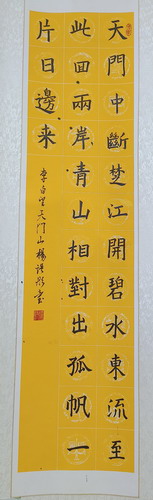 天門中斷楚江開碧水東流至
此回兩岸青山相對出孤帆一
片日邊来
李白望天門山